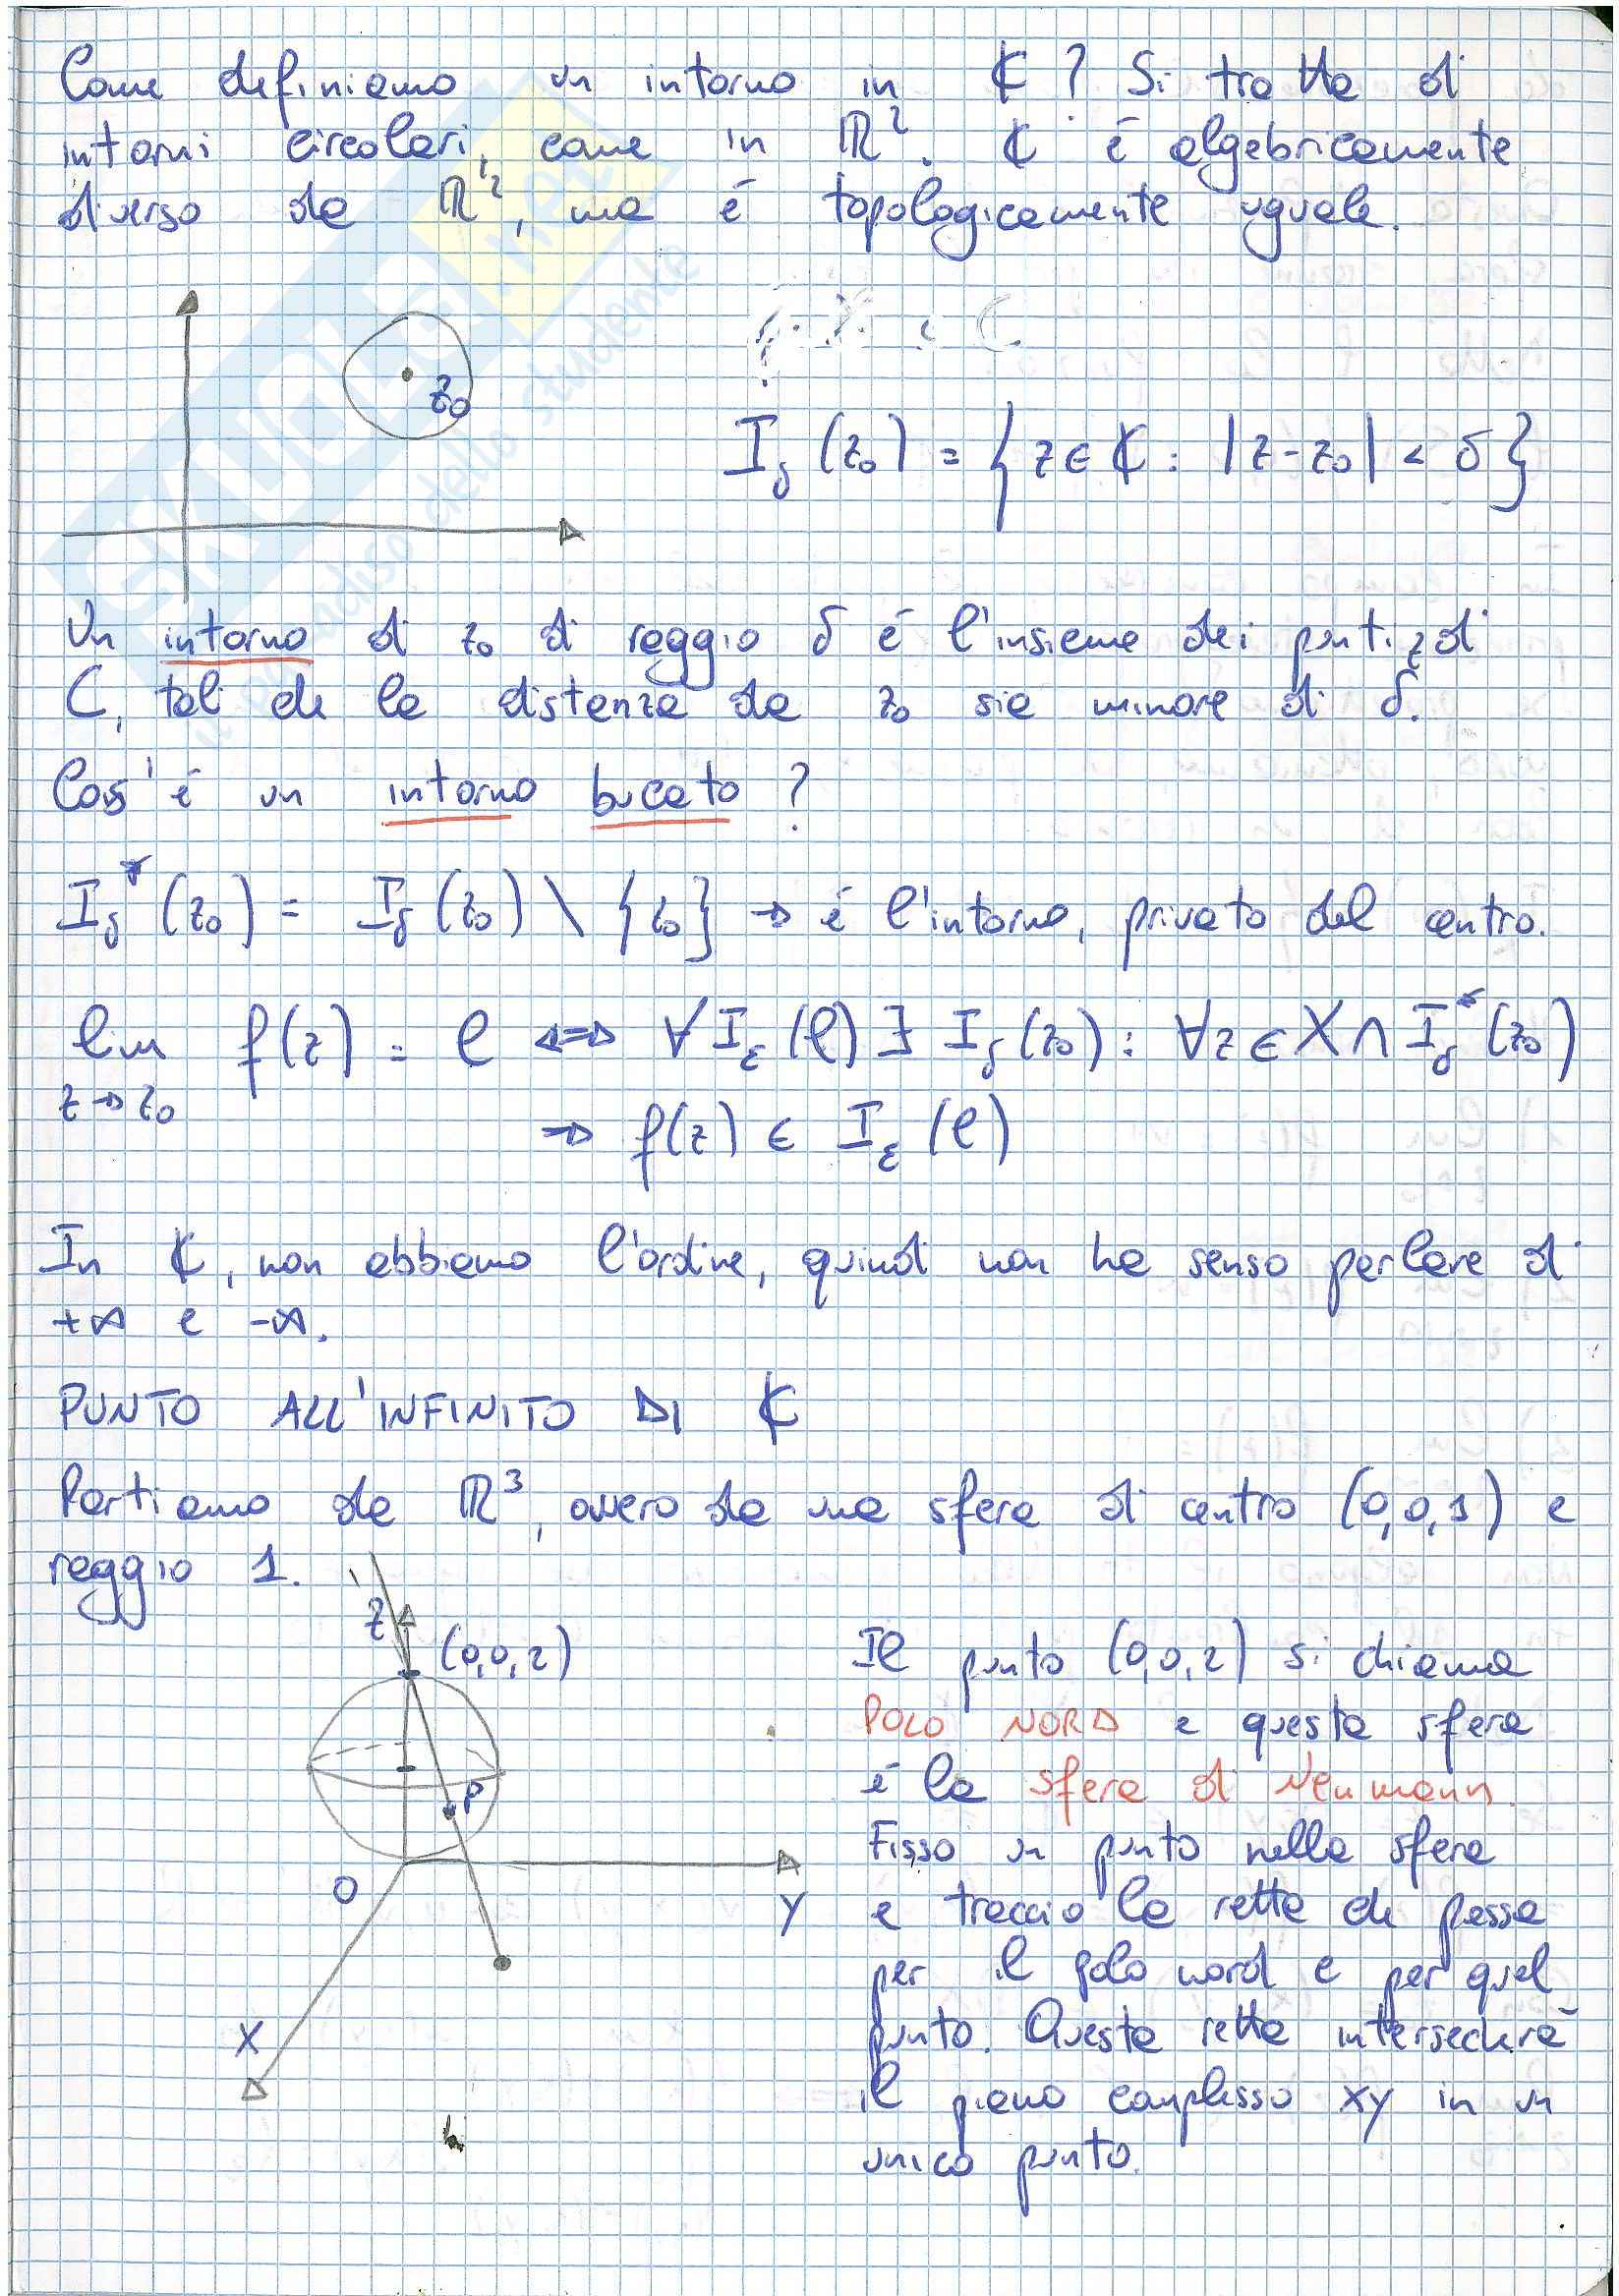 Come definiamo un intorno in ℂ? Si tratta di
intorni circolari, come in ℝ². ℂ é algebricamente
diverso da ℝ², ma é topologicamente uguale.
z₀
I_δ (z₀) = { z ∈ ℂ : |z - z₀| < δ }
Un intorno di z₀ di raggio δ é l'insieme dei punti z di
C, tali che la distanza da z₀ sia minore di δ.
Cos'é un intorno bucato?
I_δ* (z₀) = I_δ (z₀) \ {z₀} → é l'intorno, privato del centro.
lim f(z) = l ⟺ ∀ I_ε (l) ∃ I_δ (z₀) : ∀ z ∈ X ∩ I_δ* (z₀)
z → z₀
⇒ f(z) ∈ I_ε (l)
In ℂ, non abbiamo l'ordine, quindi non ha senso parlare di
+∞ e -∞.
PUNTO ALL'INFINITO DI ℂ
Partiamo da ℝ³, ovvero da una sfera di centro (0,0,1) e
raggio 1.
z
(0,0,2)
P
O
Y
X
Il punto (0,0,2) si chiama
POLO NORD e questa sfera
é la sfera di Neumann.
Fisso un punto nella sfera
e traccio la retta che passa
per il polo nord e per quel
punto. Questa retta intersecherà
il piano complesso xy in un
unico punto.
SKUOLA.net
il paradiso dello studente